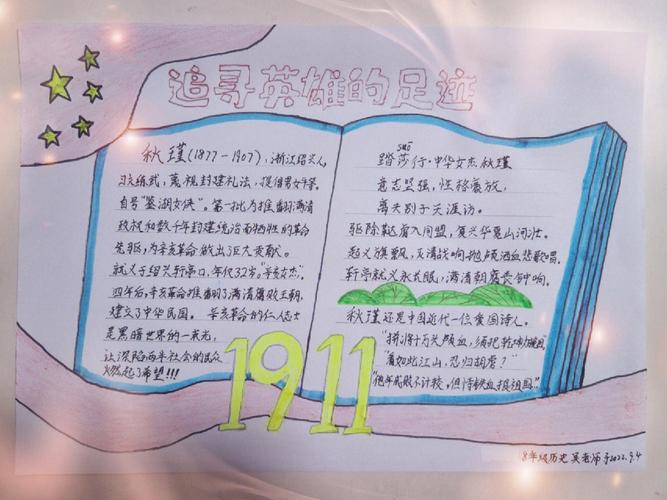 追寻英雄的足迹
秋瑾(1877-1907)，浙江绍兴人，
习文练武，蔑视封建礼法，提倡男女平等。
自号"鉴湖女侠"。第一批为推翻满清
政权和数千年封建统治而牺牲的革命
先驱，为辛亥革命做出了巨大贡献。
就义于绍兴轩亭口，年仅32岁"辛亥女杰"。
四年后，辛亥革命推翻了满清腐败王朝，
建立了中华民国。辛亥革命的仁人志士
是黑暗世界的一束光，
让深陷西半社会的民众
燃起了希望!!!
suō
踏莎行·中华女杰秋瑾
意志坚强，性格豪放，
离夫别子天涯访。
驱除鞑虏入同盟，复兴华夏山河壮。
起义旗飘，灭清战响，抛颅洒血悲歌唱。
轩亭就义永长眠，满清朝廷丧钟响。
秋瑾还是中国近代一位爱国诗人。
"拼将十万头颅血，须把乾坤力挽回"
"看如此江山，忍归胡虏？"
"他年成败不计较，但恃铁血报祖国"
1911
8年级历史 吴老师 于2022.9.4